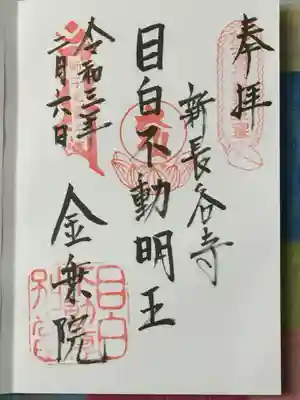 奉拝
新長谷寺
目白不動明王
令和三年
二月六日
金乗院